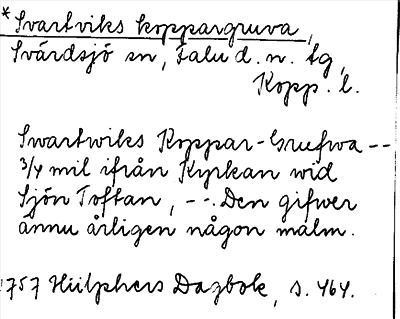 *Svartviks koppargruva,
Svärdsjö sn, Falu d. n. tg,
Kopp. l.
Swartwiks Koppar-Grufwa --
3/4 mil ifrån Kyrkan wid
Sjön Toftan, --. Den gifwer
ännu årligen någon malm.
1757 Hülphers Dagbok, s. 464.